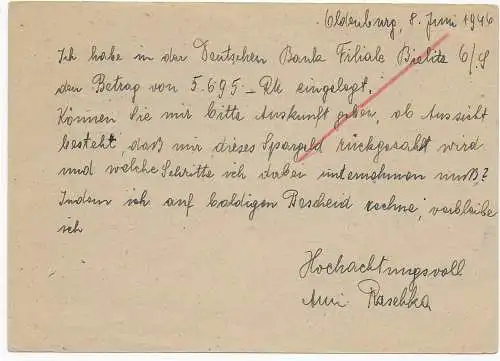 Oldenburg, 8. Juni 1946
Ich habe in der Deutschen Bank Filiale Bielitz O/S
den Betrag von 5.695 – RM eingelegt.
Können Sie mir bitte Auskunft geben, ob Aussicht
besteht, daß mir dieses Spargeld rückgezahlt wird
und welche Schritte ich dabei unternehmen muß?
Indem ich auf baldigen Bescheid rechne, verbleibe
ich
Hochachtungsvoll
Raschka